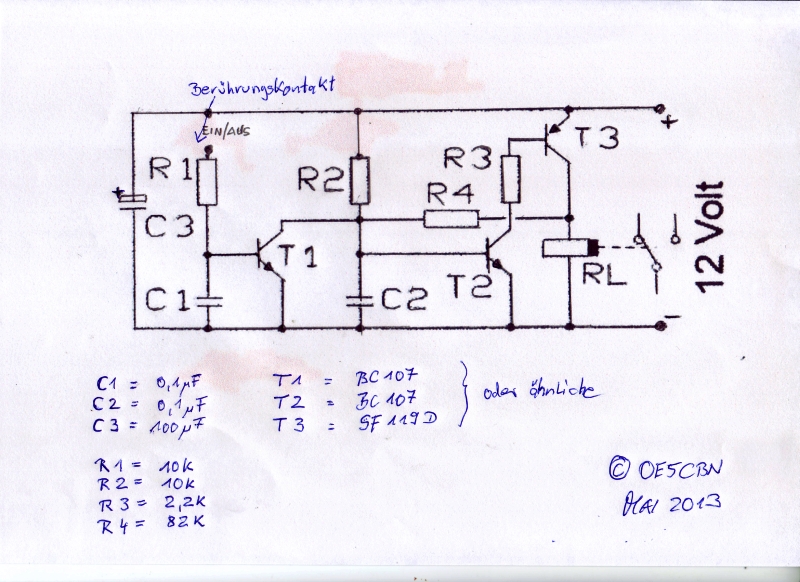 Berührungskontakt
EIN/AUS
+
T3
R1
R2
R3
R4
+
C3
T1
T2
RL
12 Volt
C1
C2
−
C1 = 0,1µF
C2 = 0,1µF
C3 = 100µF
T1 = BC107
T2 = BC107
T3 = SF119D
} oder ähnliche
R1 = 10K
R2 = 10K
R3 = 2,2K
R4 = 82K
© OE5CBN
MAI 2013